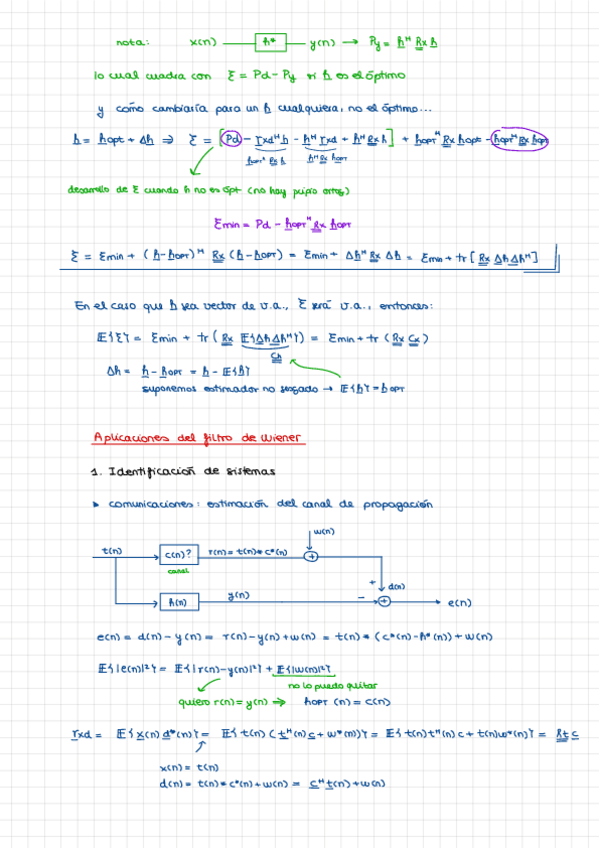 nota: x(n) h* y(n) → Py = h^H Rx h
lo cual cuadra con ξ = Pd - Py si h es el óptimo
y cómo cambiaría para un h cualquiera, no el óptimo...
h = hopt + Δh ⇒ ξ = [Pd - rxd^H h - h^H rxd + h^H Rx h] + hopt^H Rx hopt - hopt^H Rx hopt
hopt^H Rx h h^H Rx hopt
desarrollo de ξ cuando h no es ópt (no hay ppio ortog)
ξmin = Pd - hopt^H Rx hopt
ξ = ξmin + (h-hopt)^H Rx (h-hopt) = ξmin + Δh^H Rx Δh = ξmin + tr[Rx Δh Δh^H]
En el caso que h sea vector de v.a., ξ será v.a., entonces:
E{ξ} = ξmin + tr(Rx E{ΔhΔh^H}) = ξmin + tr(Rx Cx)
Ch
Δh = h - hopt = h - E{h}
suponemos estimador no sesgado → E{h} = hopt
Aplicaciones del filtro de Wiener
1. Identificación de sistemas
▸ comunicaciones: estimación del canal de propagación
w(n)
t(n) c(n)? r(n) = t(n)*c*(n) +
canal
+ d(n)
h(n) y(n) - + e(n)
e(n) = d(n) - y(n) = r(n) - y(n) + w(n) = t(n) * (c*(n) - h*(n)) + w(n)
E{|e(n)|²} = E{|r(n)-y(n)|²} + E{|w(n)|²}
no lo puedo quitar
quiero r(n) = y(n) ⇒ hopt(n) = c(n)
rxd = E{x(n) d*(n)} = E{t(n)(t^H(n) c + w*(n))} = E{t(n)t^H(n)c + t(n)w*(n)} = Rt c
x(n) = t(n)
d(n) = t(n)*c*(n) + w(n) = c^H t(n) + w(n)